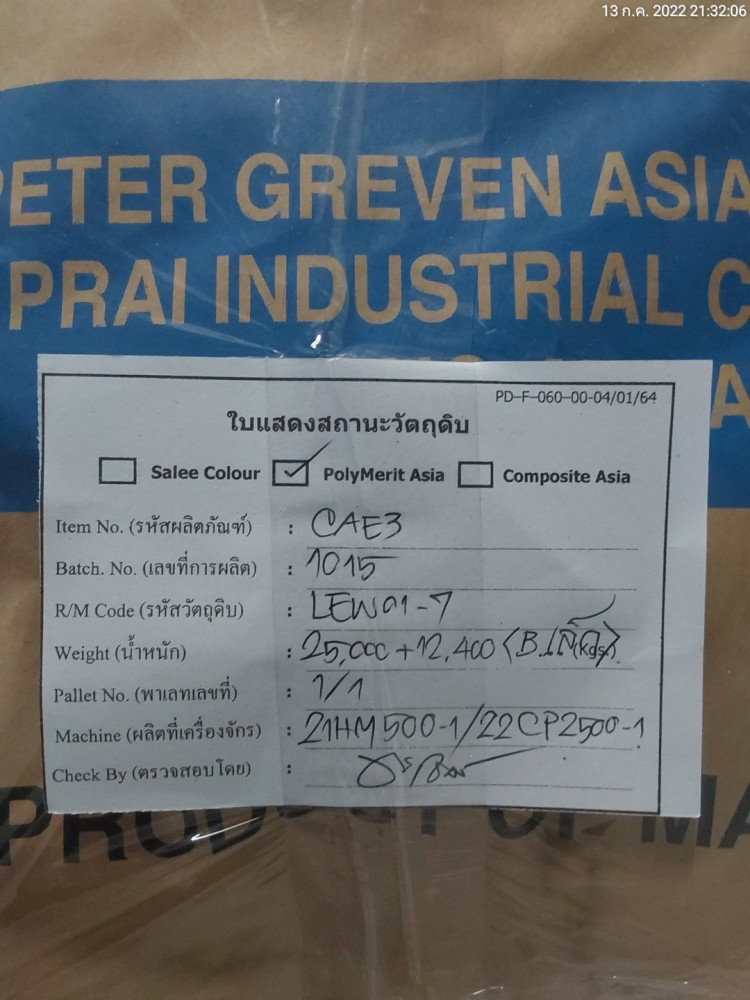 13 ก.ค. 2022 21:32:06
PETER GREVEN ASIA
PRAI INDUSTRIAL C
A
PD-F-060-00-04/01/64
ใบแสดงสถานะวัตถุดิบ
Salee Colour PolyMerit Asia Composite Asia
Item No. (รหัสผลิตภัณฑ์) : CAE3
Batch. No. (เลขที่การผลิต) : 1015
R/M Code (รหัสวัตถุดิบ) : LEW01-7
Weight (น้ำหนัก) : 25,000+12,400 (kgs.)
Pallet No. (พาเลทเลขที่) : 1/1
Machine (ผลิตที่เครื่องจักร) : 21HM500-1/22CP2500-1
Check By (ตรวจสอบโดย) :
PRODUCT OF MA